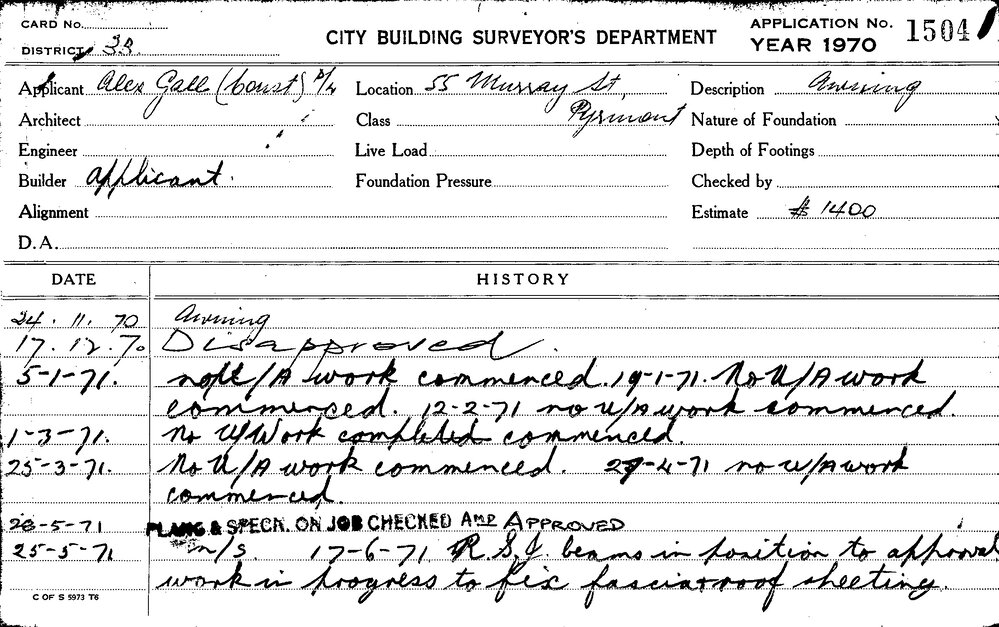 CARD No.
DISTRICT 33.
CITY BUILDING SURVEYOR'S DEPARTMENT
APPLICATION No. 1504
YEAR 1970
Applicant Alex Gall (Const) P/L
Location 55 Murray St,
Description Awning
Architect
Class Pyrmont
Nature of Foundation
Engineer
Live Load
Depth of Footings
Builder applicant.
Foundation Pressure
Checked by
Alignment
Estimate $ 1400
D.A.
DATE HISTORY
24.11.70 Awning
17.12.70 Disapproved.
5-1-71. no U/A work commenced. 19-1-71. No U/A work
commenced. 12-2-71 no u/A work commenced.
1-3-71. No U/Work completed commenced.
25-3-71. No U/A work commenced. 29-4-71 no u/A work
commenced.
20-5-71 PLANS & SPECN. ON JOB CHECKED AND APPROVED
25-5-71 n/s. 17-6-71 R.S.J. beams in position to approval
work in progress to fix fascia+roof sheeting.
C OF S 5973 T6